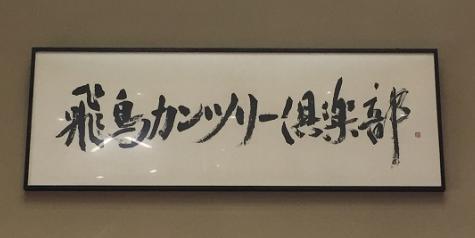 飛鳥カンツリー倶楽部